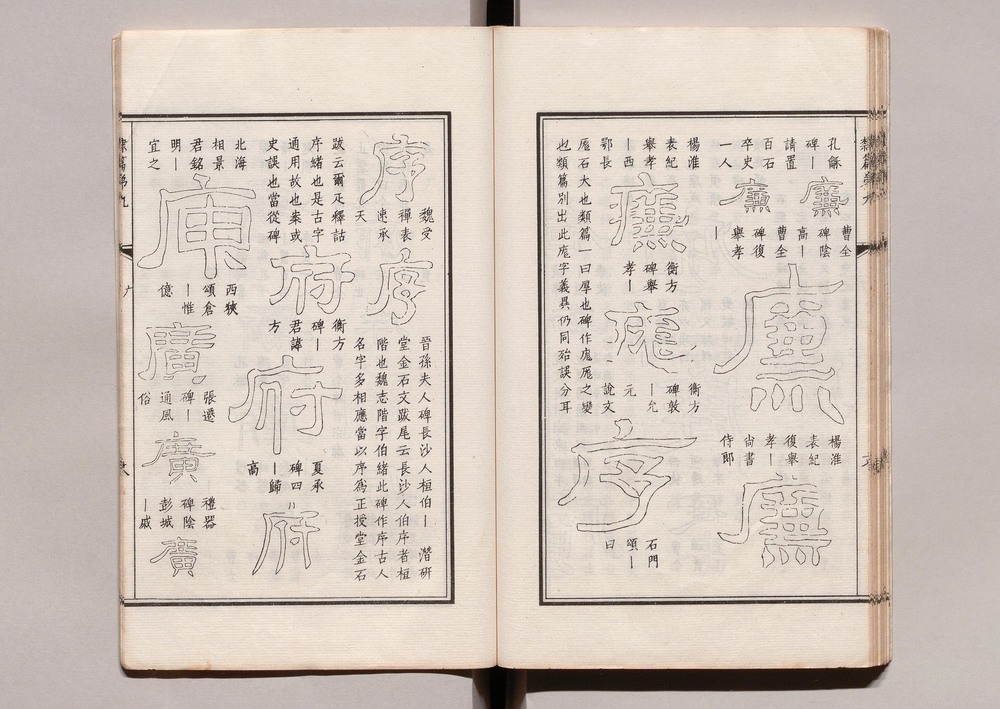 孔龢
碑丨
請置
百石
卒史
一人
廉
廉
曹全
碑陰
高丨
曹全
碑復
舉孝
丨
廉
楊淮
表紀
復舉
孝丨
尚書
侍郎
廉
楊淮
表紀
舉孝
丨西
鄂長
廉
衡方
碑舉
孝丨
庬
衡方
碑敦
丨允
元
說文
厖石大也類篇一曰厚也碑作庬厖之變
也類篇別出此庬字義異仍同殆誤分耳
序
石門
頌丨
曰
序
魏受
禪表
速承
天
序
晉孫夫人碑長沙人桓伯丨 潛研
堂金石文跋尾云長沙人伯序者桓
階也魏志階字伯緒此碑作序古人
名字多相應當以序為正授堂金石
跋云爾疋釋詁
序緒也是古字
通用故也案或
史誤也當從碑
府
衡方
碑丨
君諱
方
府
夏承
碑四
丨歸
高
府
北海
相景
君銘
明丨
宜之
庾
西狹
頌倉
丨惟
億
廣
張遷
碑丨
通風
俗
廣
禮器
碑陰
彭城
丨戚
廣
隸篇第九